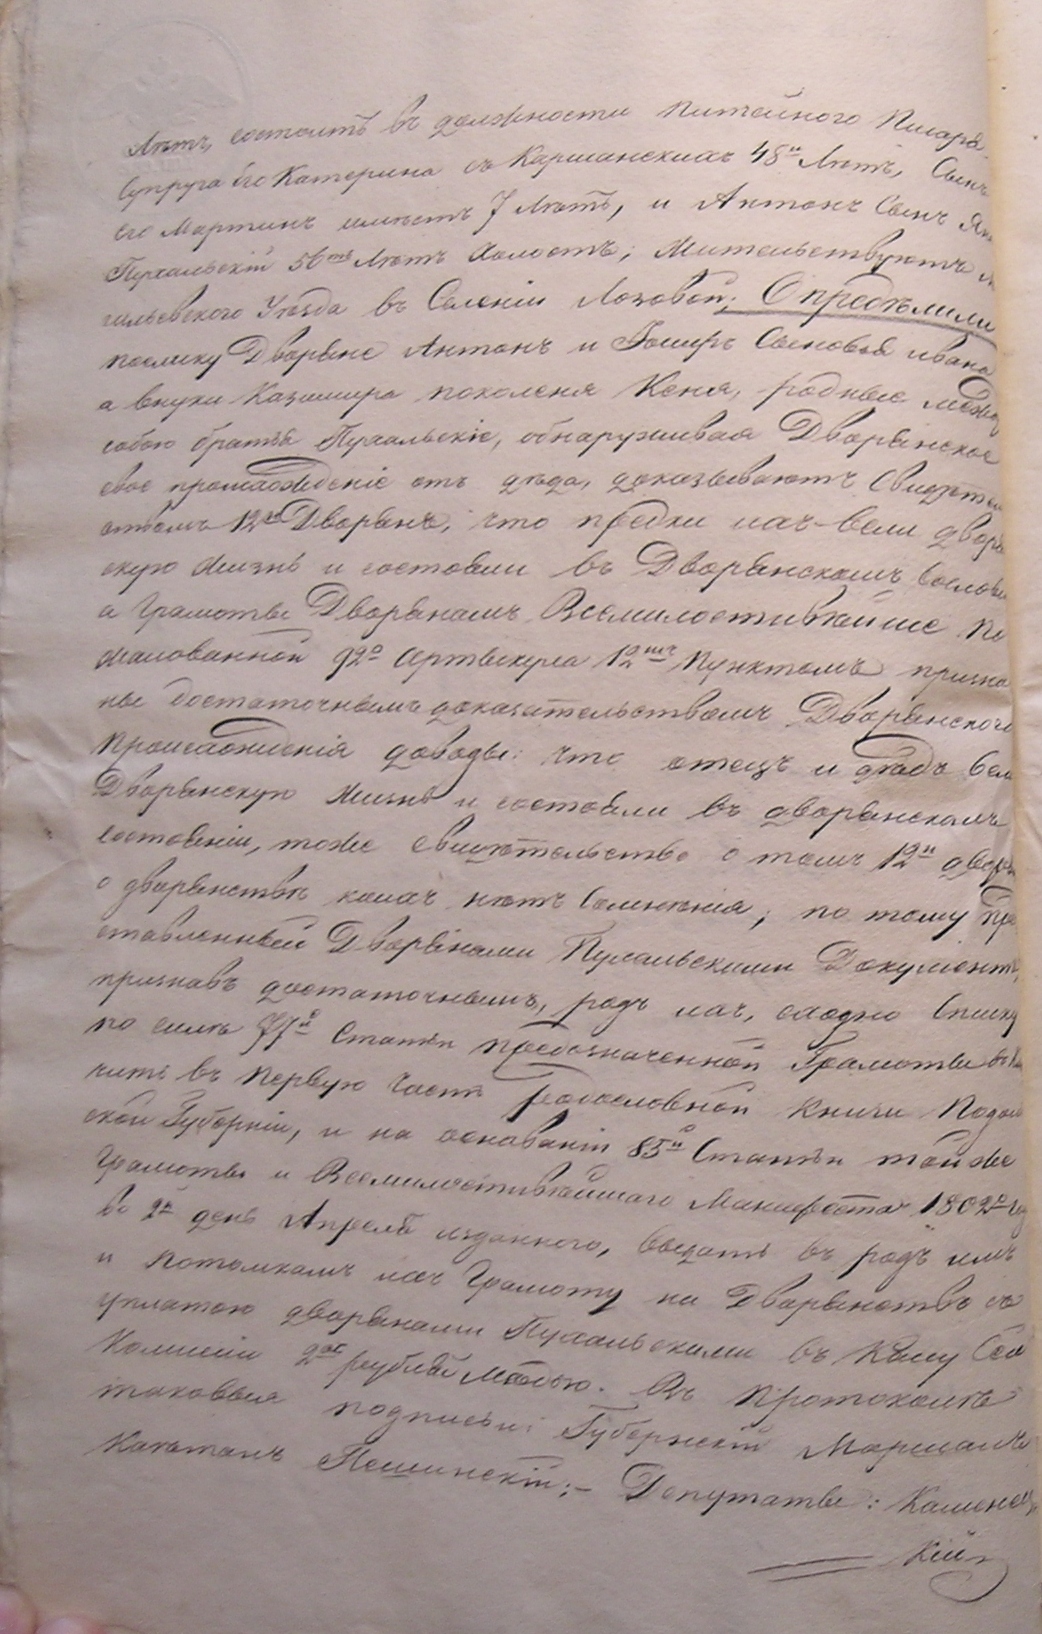 Лѣтъ, состоитъ въ должности питейного Писаря
Супруга его Катерина съ Каршанскихъ 48и Лѣтъ, Сынъ
его Мартинъ имѣетъ 7 Лѣтъ, и Антонъ Сынъ
Пухальскій 56ть Лѣтъ Холостъ; Жительствуютъ
гилевского Уѣзда въ Селеніи Лозовой; Опредѣлили
поелику Дворяне Антонъ и Сыновья Ивана
а внуки Казимира поколеня Ксня, родные между
собою братья Пухальскіе, обнаруживая Дворянское
свое происхожденіе отъ дѣда, доказываютъ Свидѣтел
ствомъ 12ти Дворянъ, что предки ихъ вели дворя
скую жизнь и состояли въ Дворянскомъ Сослови
а Грамоты Дворянамъ Всемилостивѣйше По
жалованной 92о Артыкула 12мъ Пунктомъ призна
ны достаточнымъ доказательствомъ Дворянского
происхожденія доводы: что отецъ и дѣдъ вели
Дворянскую жизнь и состояли въ дворянскомъ
состояніи, тоже свидѣтельство о томъ 12и дворян
о дворянствѣ коихъ нѣтъ Сомнѣнія; по тому пре
ставленный Дворянами Пухальскими Документъ,
признавъ достаточнымъ, родъ ихъ, сходно Списку
по силѣ 77й Статьи предозначенной Грамоты
чить въ первую часть родословной книги Подол
ской Губерніи, и на основаніи 85й Статьи той же
Грамоты и Всемилостивѣйшаго Манифеста 1802о го
во 2й день Апреля изданного, выдать въ родъ имъ
и потомкамъ ихъ Грамоту на Дворянство съ
уплатою дворянами Пухальскими въ Касу Сей
Комисіи 2хъ рублей мѣдью. Въ протоколѣ
таковыя подписы: Губернскій Маршалъ
Каетанъ Пешинскій:– Депутаты: Каменец
кій